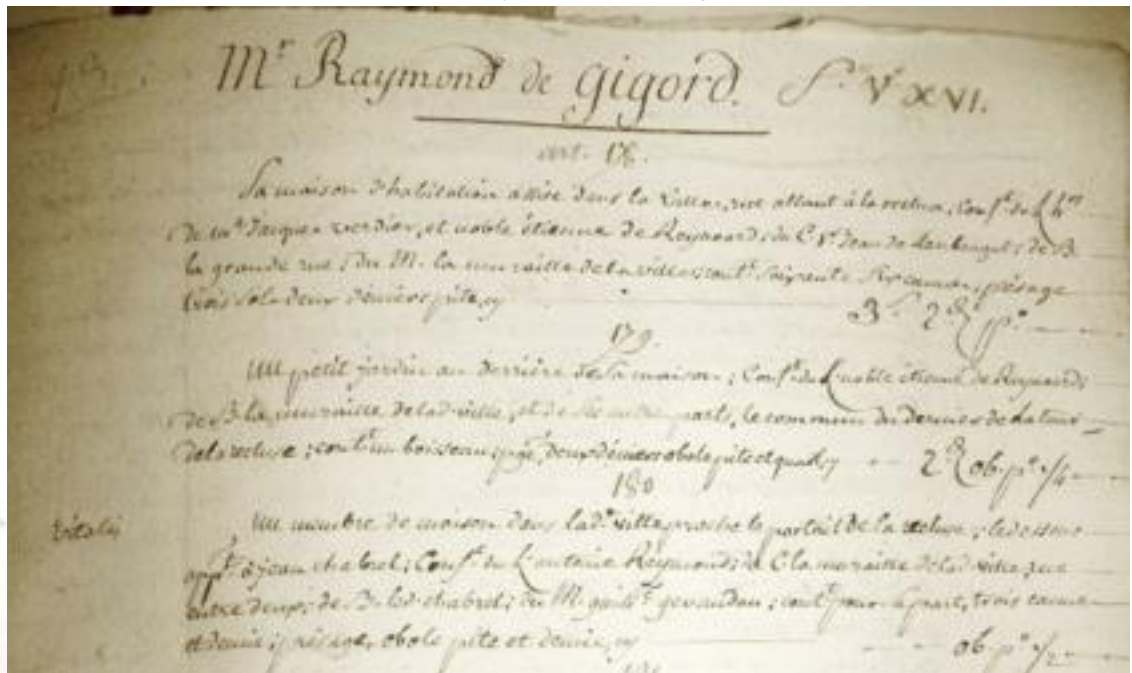 Mr Raymond de Gigord. f° V° XVI.
art. 178.
Sa maison d'habitation assise dans la ville, rue allant à la recluse, Conf.t du L.
de Jacques verdier, et noble étienne de Reynaord; du C. V.e Jean de; de B.
la grande rue; du M. la muraille de la ville; cont.t soixante six cannes, présage
trois sols deux deniers pite,
3s 2d p.e
179.
Un petit jardin au derrière de sa maison; Conf.t du L. noble étienne de Reynaord;
de B. la muraille de lad. ville, et de les autres parts, le commun du derrier de la tour
de la recluse; cont.t un boisseau, deux deniers obole pite et quart,
2d ob. p.e 1/4
180
vitalis
Un membre de maison dans lad.e ville proche le portail de la recluse; le dessus
app.t à jean chabrol; Conf.t du L. antoine Reymond; de C. la muraille de lad. ville, rue
entre deux; de B. led. chabrol; du M. gevaudan; cont.t pour sa part, trois cannes
et demie; présage, obole pite et demie,
ob. p.e 1/2